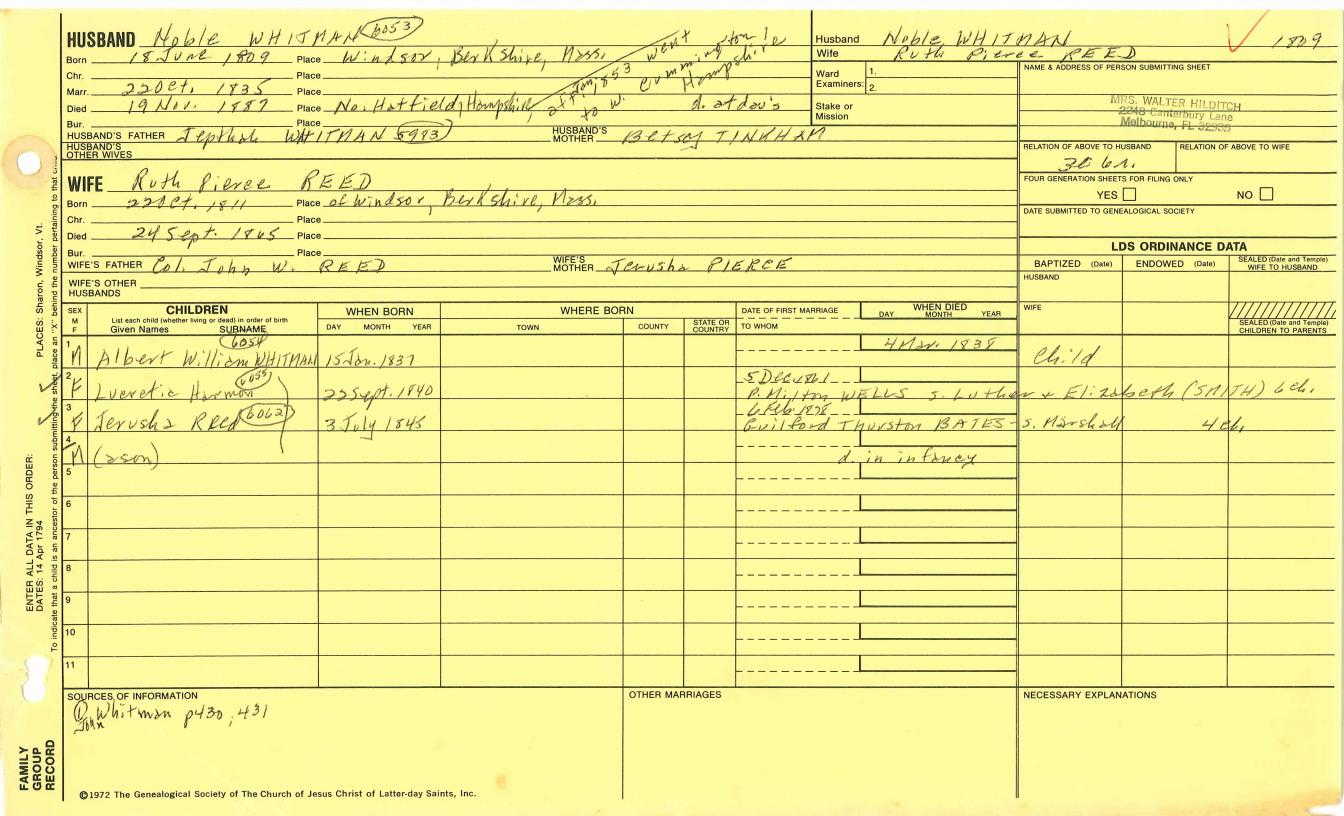 HUSBAND Noble WHITMAN 6053
Born 18 June 1809 Place Windsor, Berkshire, Mass.
Chr. Place
Marr. 22 Oct. 1835 Place
Died 19 Nov. 1887 Place No. Hatfield, Hampshire, d. at dau's
aft Jan, 1853 went
to W. Cummington!
Hampshire
Bur. Place
HUSBAND'S FATHER Jepthah WHITMAN 5983 HUSBAND'S MOTHER Betsey TINKHAM
HUSBAND'S OTHER WIVES
WIFE Ruth Pierce REED
Born 22 Oct. 1811 Place of Windsor, Berkshire, Mass.
Chr. Place
Died 24 Sept. 1865 Place
Bur. Place
WIFE'S FATHER Col. John W. REED WIFE'S MOTHER Jerusha PIERCE
WIFE'S OTHER HUSBANDS
Husband Noble WHITMAN 1809
Wife Ruth Pierce REED
Ward Examiners: 1. 2.
Stake or Mission
NAME & ADDRESS OF PERSON SUBMITTING SHEET
MRS. WALTER HILDITCH
2248 Canterbury Lane
Melbourne, FL 32935
RELATION OF ABOVE TO HUSBAND RELATION OF ABOVE TO WIFE
FOUR GENERATION SHEETS FOR FILING ONLY
YES NO
DATE SUBMITTED TO GENEALOGICAL SOCIETY
LDS ORDINANCE DATA
BAPTIZED (Date) ENDOWED (Date) SEALED (Date and Temple) WIFE TO HUSBAND
HUSBAND
WIFE
SEALED (Date and Temple) CHILDREN TO PARENTS
SEX M F CHILDREN WHEN BORN WHERE BORN DATE OF FIRST MARRIAGE WHEN DIED
List each child (whether living or dead) in order of birth
Given Names SURNAME DAY MONTH YEAR TOWN COUNTY STATE OR COUNTRY TO WHOM DAY MONTH YEAR
1 M Albert William WHITMAN 6054 15 Jan. 1837 4 Mar. 1838 Child
2 F Lucretia Harmon 6055 22 Sept. 1840 5 Dec 1861
P. Milton WELLS s. Luther & Elizabeth (SMITH) 6 ch.
3 F Jerusha Reed 6062 3 July 1845 6 Feb 1878
Guilford Thurston BATES - s. Marshall 4 ch.
4 M (a son) d. in infancy
5
6
7
8
9
10
11
SOURCES OF INFORMATION
John Whitman p430, 431
OTHER MARRIAGES
NECESSARY EXPLANATIONS
©1972 The Genealogical Society of The Church of Jesus Christ of Latter-day Saints, Inc.
FAMILY GROUP RECORD
ENTER ALL DATA IN THIS ORDER:
DATES: 14 Apr 1794 PLACES: Sharon, Windsor, Vt.
To indicate that a child is an ancestor of the person submitting the sheet, place an "X" behind the number pertaining to that